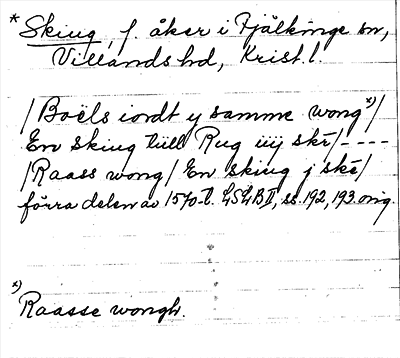 * Skiug, f. åker i Fjälkinge sn,
Villands hd, Krist. l.
/Boëls iordt y samme wong x)/
En skiug tüll Rug iiij skè/----
/Raass wong/ En skiug j skè/
förra delen av 1570-t. LSLB II, ss. 192, 193. orig.
x)
Raasse wongh.